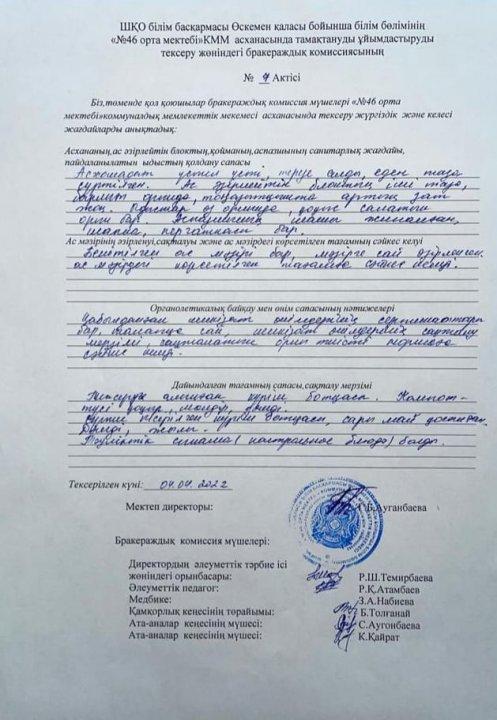 ШҚО білім басқармасы Өскемен қаласы бойынша білім бөлімінің
«№46 орта мектебі»КММ асханасында тамақтануды ұйымдастыруды
тексеру жөніндегі бракераждық комиссиясының
№ 9 Актісі
Біз,төменде қол қоюшылар бракераждық комиссия мүшелері «№46 орта
мектебі»коммуналдық мемлекеттік мекемесі асханасында тексеру жүргіздік және келесі
жағдайларды анықтадық:
Асхананың,ас әзірлейтін блоктың,қойманың,аспазшының санитарлық жағдайы,
пайдаланылатын ыдыстың қолдану сапасы
үстел үсті, алды, еден таза
сүртілген. Ас әзірлейтін блоктың іші таза,
артық зат
жоқ. өз орнында, салатын
орын бар. шашы жиналған,
бар.
Ас мәзірінің әзірленуі,сақталуы және ас мәзірдегі көрсетілген тағамның сәйкес келуі
Бекітілген ас мәзірі бар, мәзірге сай әзірленген.
ас мәзірдегі көрсетілген тағамға сәйкес келеді.
Органолетикалық байқау мен өнім сапасының нәтижелері
шикізат өнімдерінің сертификаттары
бар, талапқа сай, шикізат өнімдерінің сақталу
мерзімі, орын тиісті нормаға
сәйкес келеді.
Дайындалған тағамның сапасы,сақталу мерзімі
күріш ботқасы. Компот-
түсі
күріш ботқасы, сары май қосылған.
Дәмді, жылы.
Тәуліктік сынама( блюдо) болды.
Тексерілген күні: 04.04.2022
Мектеп директоры: С.Б.Ауганбаева
Бракераждық комиссия мүшелері:
Директордың әлеуметтік тәрбие ісі
жөніндегі орынбасары: Р.Ш.Темирбаева
Әлеуметтік педагог: Р.Қ.Атамбаев
Медбике: З.А.Набиева
Қамқорлық кеңесінің төрайымы: Б.Толғанай
Ата-аналар кеңесінің мүшесі: С.Аугонбаева
Ата-аналар кеңесінің мүшесі: К.Қайрат